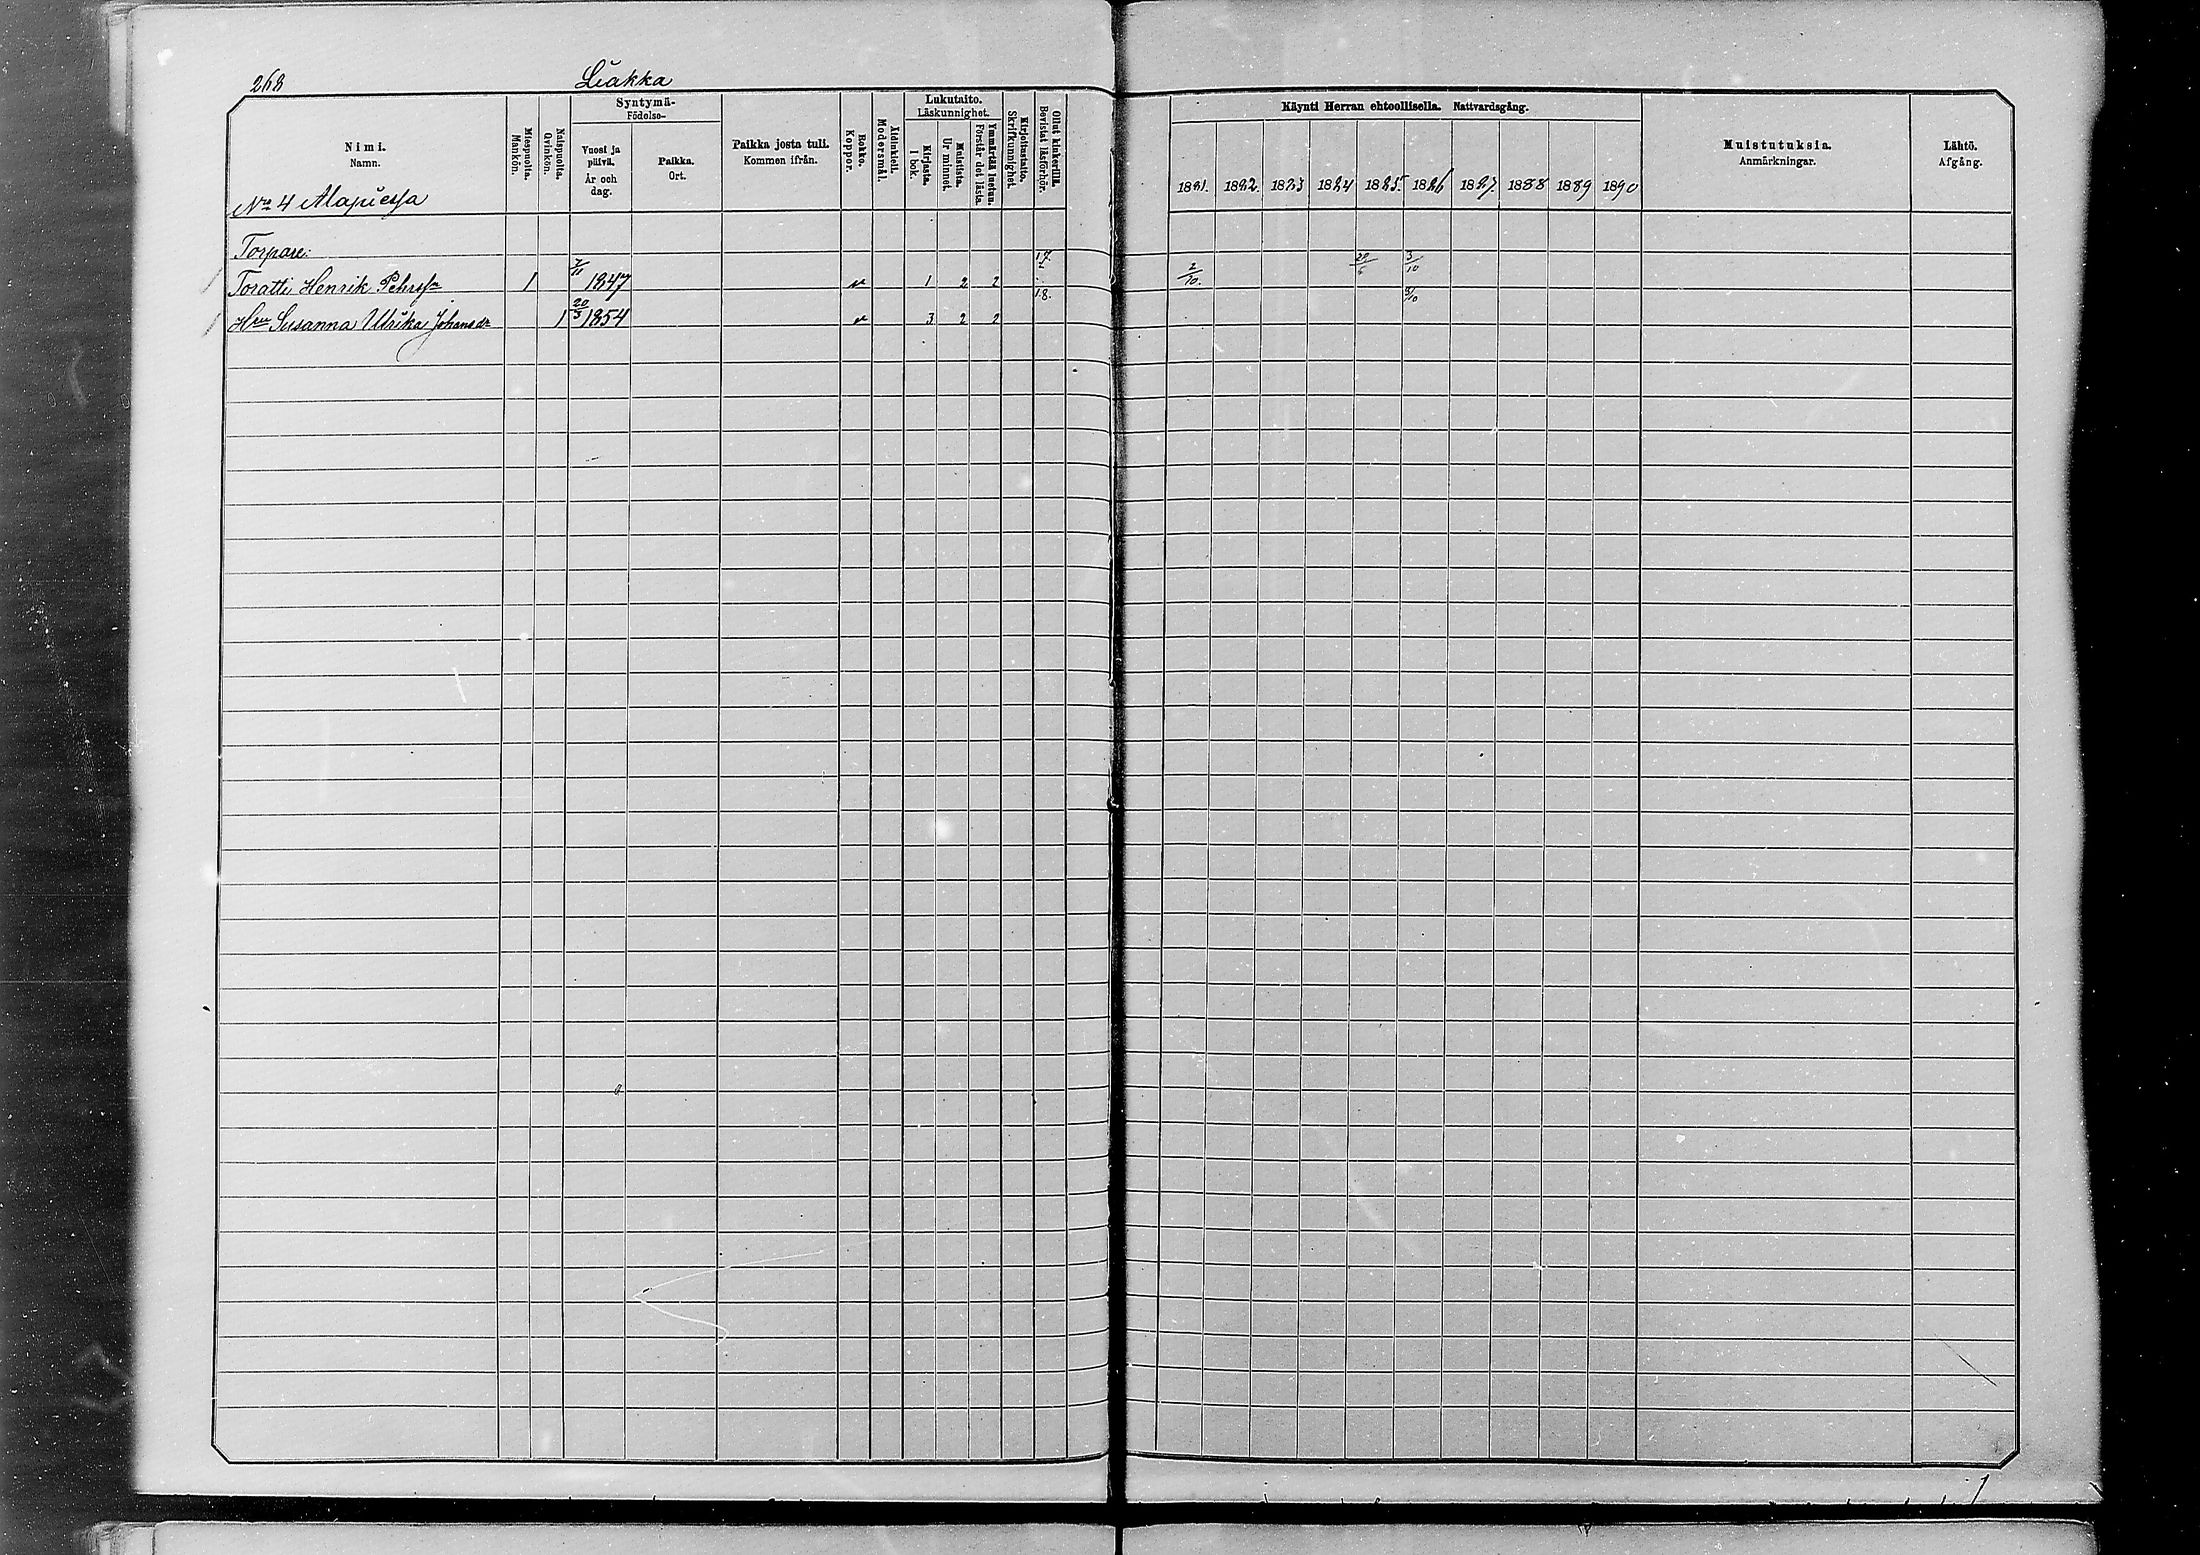 268 Liakka
Nimi.
Namn.
Miespuolta.
Mankön.
Naispuolta.
Qvinkön.
Syntymä-
Födelse-
Vuosi ja
päivä.
År och
dag.
Paikka.
Ort.
Paikka josta tuli.
Kommen ifrån.
Rokko.
Koppor.
Äidinkieli.
Modersmål.
Lukutaito.
Läskunnighet.
Kirjasta.
I bok.
Muistista.
Ur minnet.
Ymmärtää luetun.
Förstår det lästa.
Kirjoitustaito.
Skrifkunnighet.
Ollut kinkerillä.
Bevistat läsförhör.
Käynti Herran ehtoollisella. Nattvardsgång.
1881. 1882. 1883 1884 1885. 1886 1887 1888 1889 1890
Muistutuksia.
Anmärkningar.
Lähtö.
Afgång.
No 4 Alapiessa
Torpare:
Toratti Henrik Pehrssn 1 7/11 1847 v 1 2 2 17. 2/10. 3/10
Hru Susanna Ulrika Johansdr 1 20/3 1854 v 3 2 2 18. 3/10